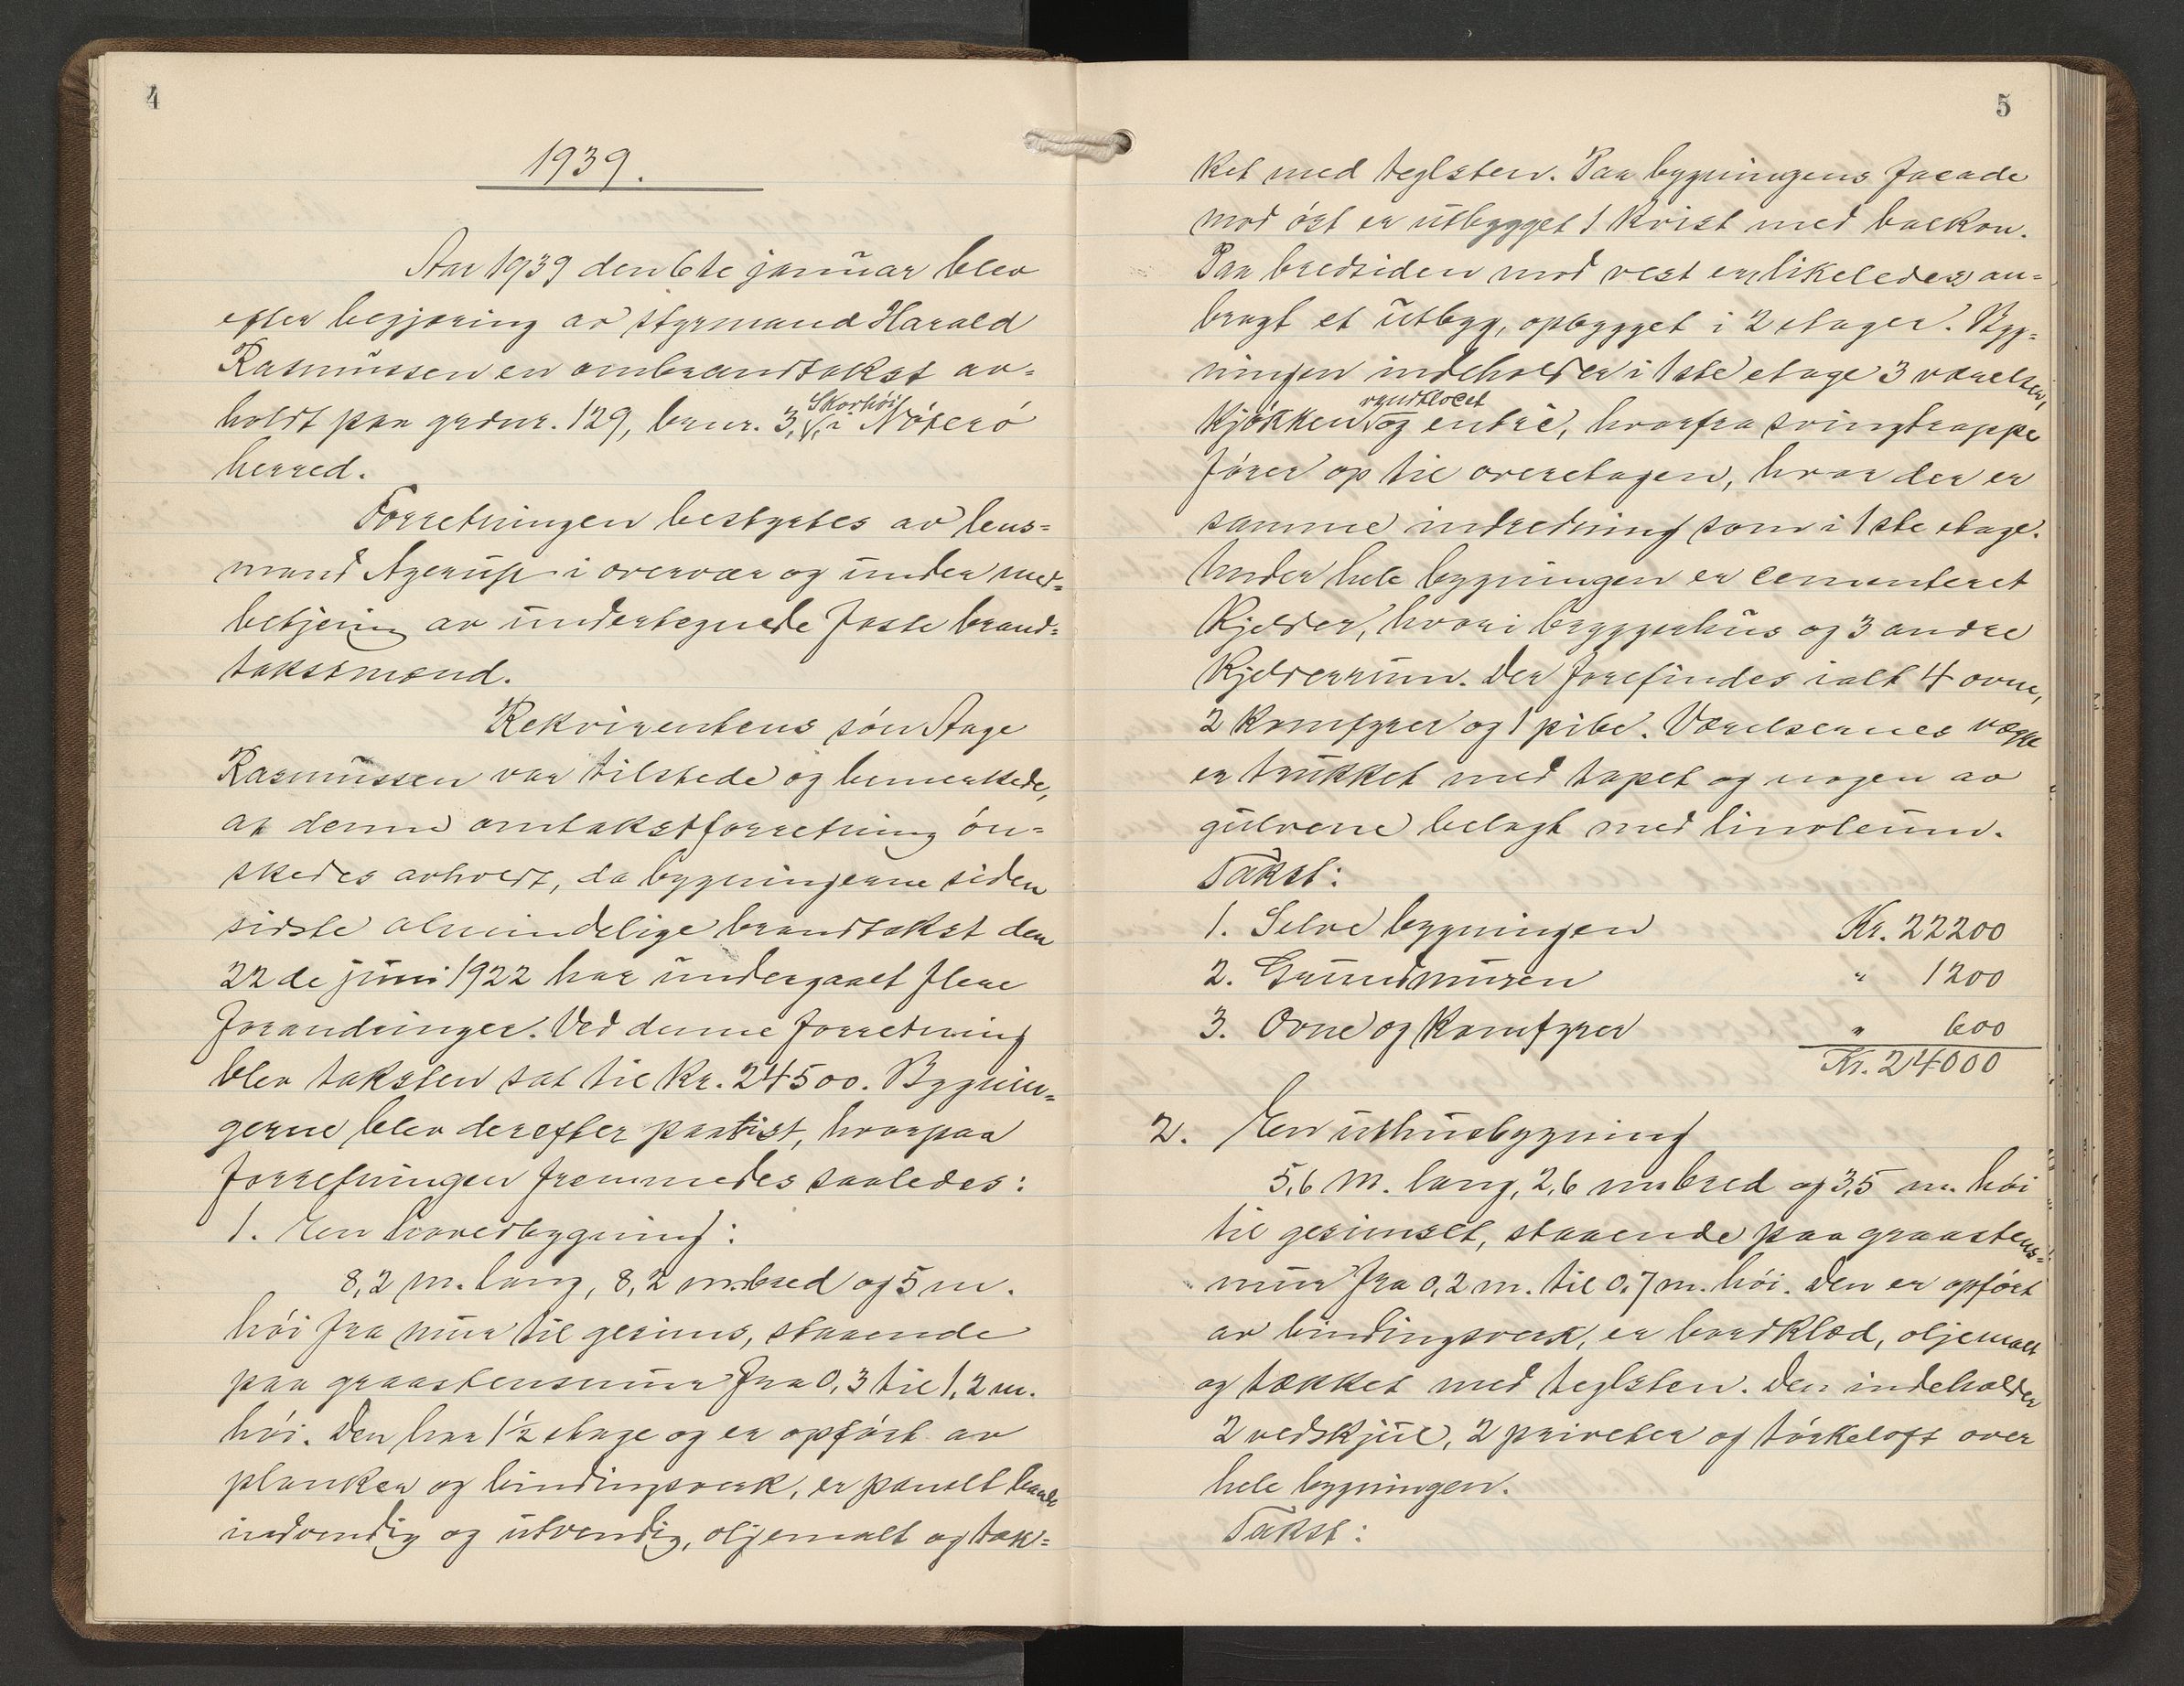 4
1939.
Aar 1939 den 6te januar blev
efter begjæring av styrmand Harald
Rasmussen en ombrandtakst av=
holdt paa gaardnr. 129, brnr. 3, Skovhöi, i Nöterö
herred.
Forretningen bestyrtes av lens=
mand Agerup i overvær og under med=
betjening av undertegnede faste brand=
takstmænd.
Rekvirentens sön Aage
Rasmussen var tilstede og bemerkede,
at denne omtakstforretning ön=
skedes avholdt, da bygningerne siden
sidste almindelige brandtakst den
22de juni 1922 har undergaaet flere
forandringer. Ved denne forretning
blev taksten sat til Kr. 24500. Bygnin=
gerne blev derefter paavist, hvorpaa
forretningen fremmedes saaledes:
1. En hovedbygning:
8,2 m. lang, 8,2 m. bred og 5 m.
höi fra mur til gesims, staaende
paa graastensmur fra 0,3 til 1,2 m.
höi. Den har 1½ etage og er opfört av
planker og bindingsverk, er panelt baade
indvendig og utvendig, oljemalt og tæk=
5
ket med teglsten. Paa bygningens facade
mod öst er utbygget 1 kvist med balkon.
Paa bredsiden mod vest er likeledes an=
bragt et utbyg, opbygget i 2 etager. Byg=
ningen indeholder i 1ste etage 3 værelser,
kjökken, vandkloset og entrè, hvorfra svingtrappe
förer op til overetagen, hvor der er
samme indredning som i 1ste etage.
Under hele bygningen er cementeret
kjelder, hvori bryggerhus og 3 andre
kjelderrum. Der forefindes ialt 4 ovne,
2 komfyrer og 1 pibe. Værelsernes vægge
er trukket med tapet og nogen av
gulvene belagt med linoleum.
Takst:
1. Selve bygningen Kr. 22200
2. Grundmuren " 1200
3. Ovne og komfyrer " 600
Kr. 24000
2. En uthusbygning
5,6 m. lang, 2,6 m. bred og 3,5 m. höi
til gesimset, staaende paa graastens=
mur fra 0,2 m. til 0,7 m. höi. Den er opfört
av bindingsverk, er bordklæd, oljemalt
og tækket med teglsten. Den indeholder
2 vedskjul, 2 priveter og törkeloft over
hele bygningen.
Takst: